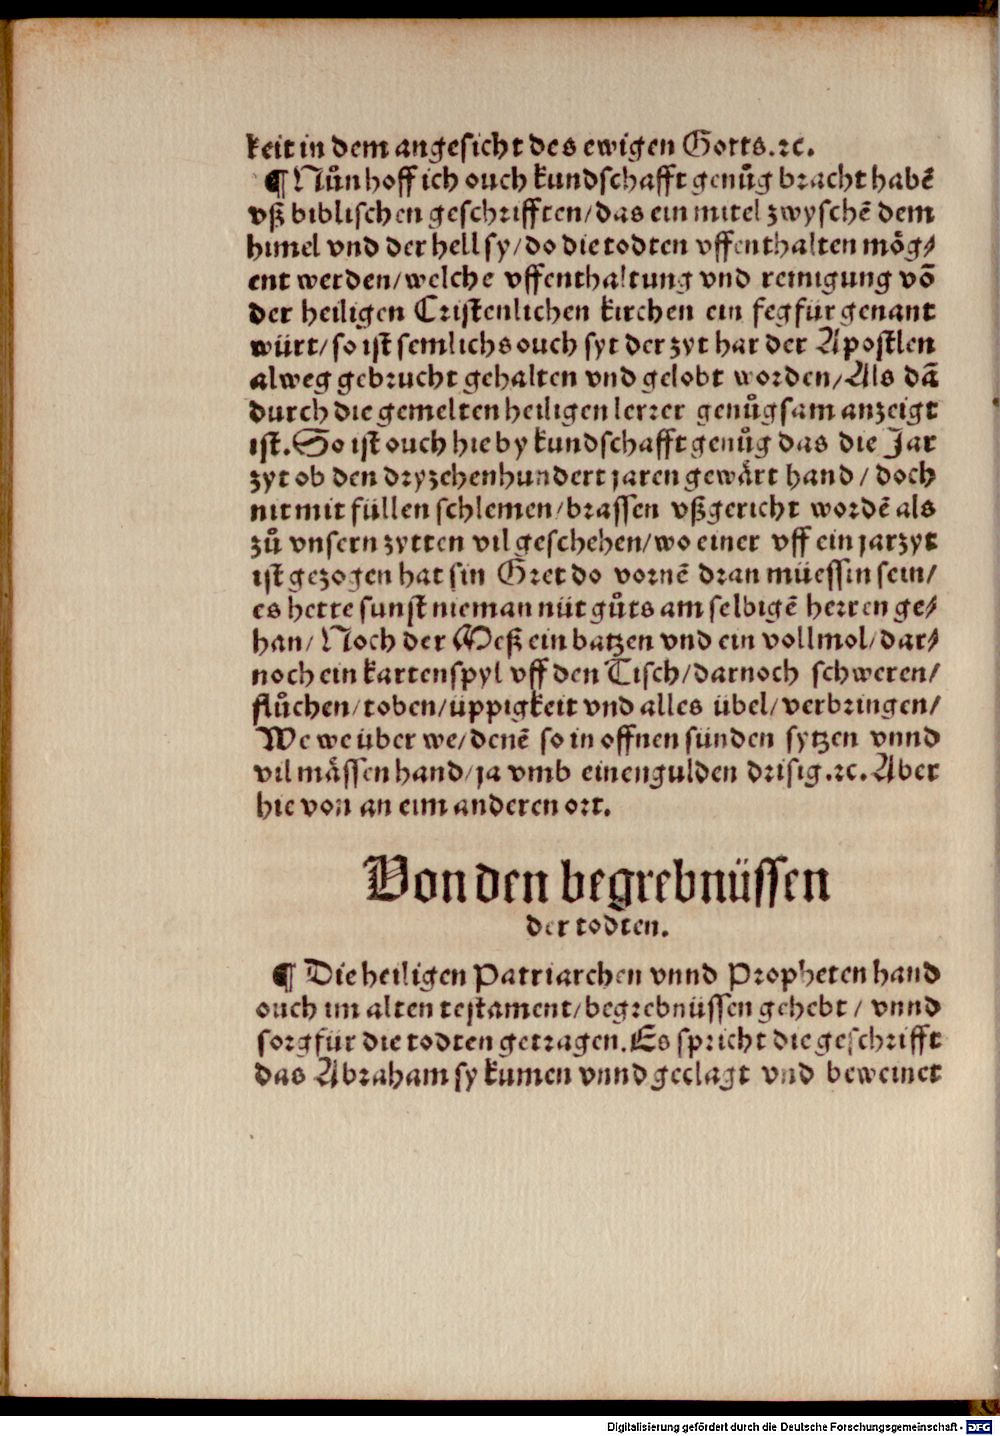 keit in dem angesicht des ewigen Gotts.ꝛc.
¶ Nůn hoff ich ouch kundschafft genůg bracht habē
vß biblischen geschrifften/das ein mitel zwyschē dem
himel vnd der hell sy/do die todten vffenthalten mög/
ent werden/welche vffenthaltung vnd reinigung vō
der heiligen Cristenlichen kirchen ein fegfür genant
würt/so ist semlichs ouch syt der zyt har der Apostlen
alweg gebrucht gehalten vnd gelobt worden/Als dā
durch die gemelten heiligen lerrer genůgsam anzeigt
ist.So ist ouch hie by kundschafft genůg das die Jar
zyt ob den dryzehenhundert jaren gewärt hand/doch
nit mit füllen schlemen/brassen vßgericht wordē als
zů vnsern zytten vil geschehen/wo einer vff ein jarzyt
ist gezogen hat sin Gret do vornē dran müessin sein/
es hette sunst nieman nüt gůts am selbigē herren ge/
han/Noch der Meß ein batzen vnd ein vollmol/dar/
noch ein kartenspyl vff den Tisch/darnoch schweren/
flůchen/toben/üppigkeit vnd alles übel/verbringen/
We we über we/denē so in offnen sünden sytzen vnnd
vil mässen hand/ja vmb einengulden drisig.ꝛc.Aber
hie von an eim anderen ort.
Von den begrebnüssen
der todten.
¶ Die heiligen Patriarchen vnnd Propheten hand
ouch im alten testament/begrebnüssen gehebt/vnnd
sorg für die todten getragen.Es spricht die geschrifft
das Abraham sy kumen vnnd geclagt vnd beweinet
Digitalisierung gefördert durch die Deutsche Forschungsgemeinschaft - DFG